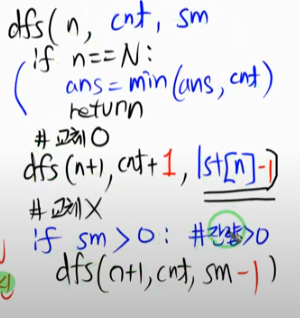 dfs(n, cnt, sm
if n==N:
ans=min(ans, cnt)
return
#교체 O
dfs(n+1, cnt+1, lst[n]-1)
#교체 X
if sm>0: #잔량>0
dfs(n+1, cnt, sm-1)